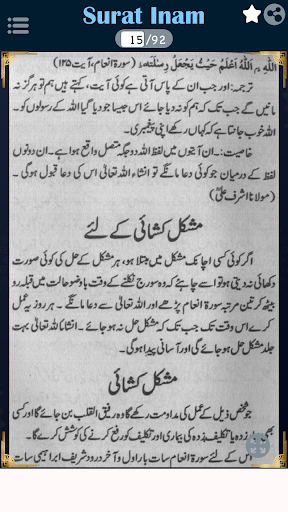 Surat Inam
15/92
اللّٰهِ ؕ اَللّٰهُ اَعْلَمُ حَيْثُ يَجْعَلُ رِسٰلَتَهٗ ؕ (سورۃ انعام، آیت ۱۲۵)
ترجمہ: اور جب ان کے پاس آتی ہے کوئی آیت، کہتے ہیں ہم تو ہرگز نہ
مانیں گے جب تک کہ ہم کو نہ دیا جائے اس جیسا جو دیا گیا اللہ کے رسولوں کو۔
اللہ خوب جانتا ہے کہ کہاں رکھے اپنی پیغمبری۔
خاصیت:۔ ان آیتوں میں لفظ اللہ دو جگہ متصل واقع ہوا ہے۔ ان دونوں
لفظ کے درمیان جو کوئی دعا مانگے تو انشاء اللہ اس کی دعا قبول ہوگی۔
(مولانا اشرف علیؒ)
مشکل کشائی کے لئے
اگر کوئی کسی اچانک مشکل میں مبتلا ہو، ہر مشکل کے حل کی کوئی صورت
دکھائی نہ دیتی ہو تو اسے چاہئے کہ وہ سورج نکلنے کے وقت باوضو حالت میں قبلہ رو
بیٹھ کر تین مرتبہ سورۃ انعام پڑھے اور اللہ تعالیٰ سے دعا مانگے۔ ہر روز یہ عمل
کرے اس وقت تک جب تک کہ مشکل حل نہ ہو جائے۔ انشا اللہ تعالیٰ بہت
جلد مشکل حل ہو جائے گی اور آسانی پیدا ہوگی۔
مشکل کشائی
جو شخص ذیل کے عمل کی مداومت رکھے گا وہ رفیق القلب بن جائے گا اور کسی
بھی زدہ یا تکلیف زدہ کی بیماری اور تکلیف کو رفع کرنے کی کوشش کرے گا۔
اس کے لئے سورۃ انعام سات بار اول و آخر درود شریف ابراہیمی سات